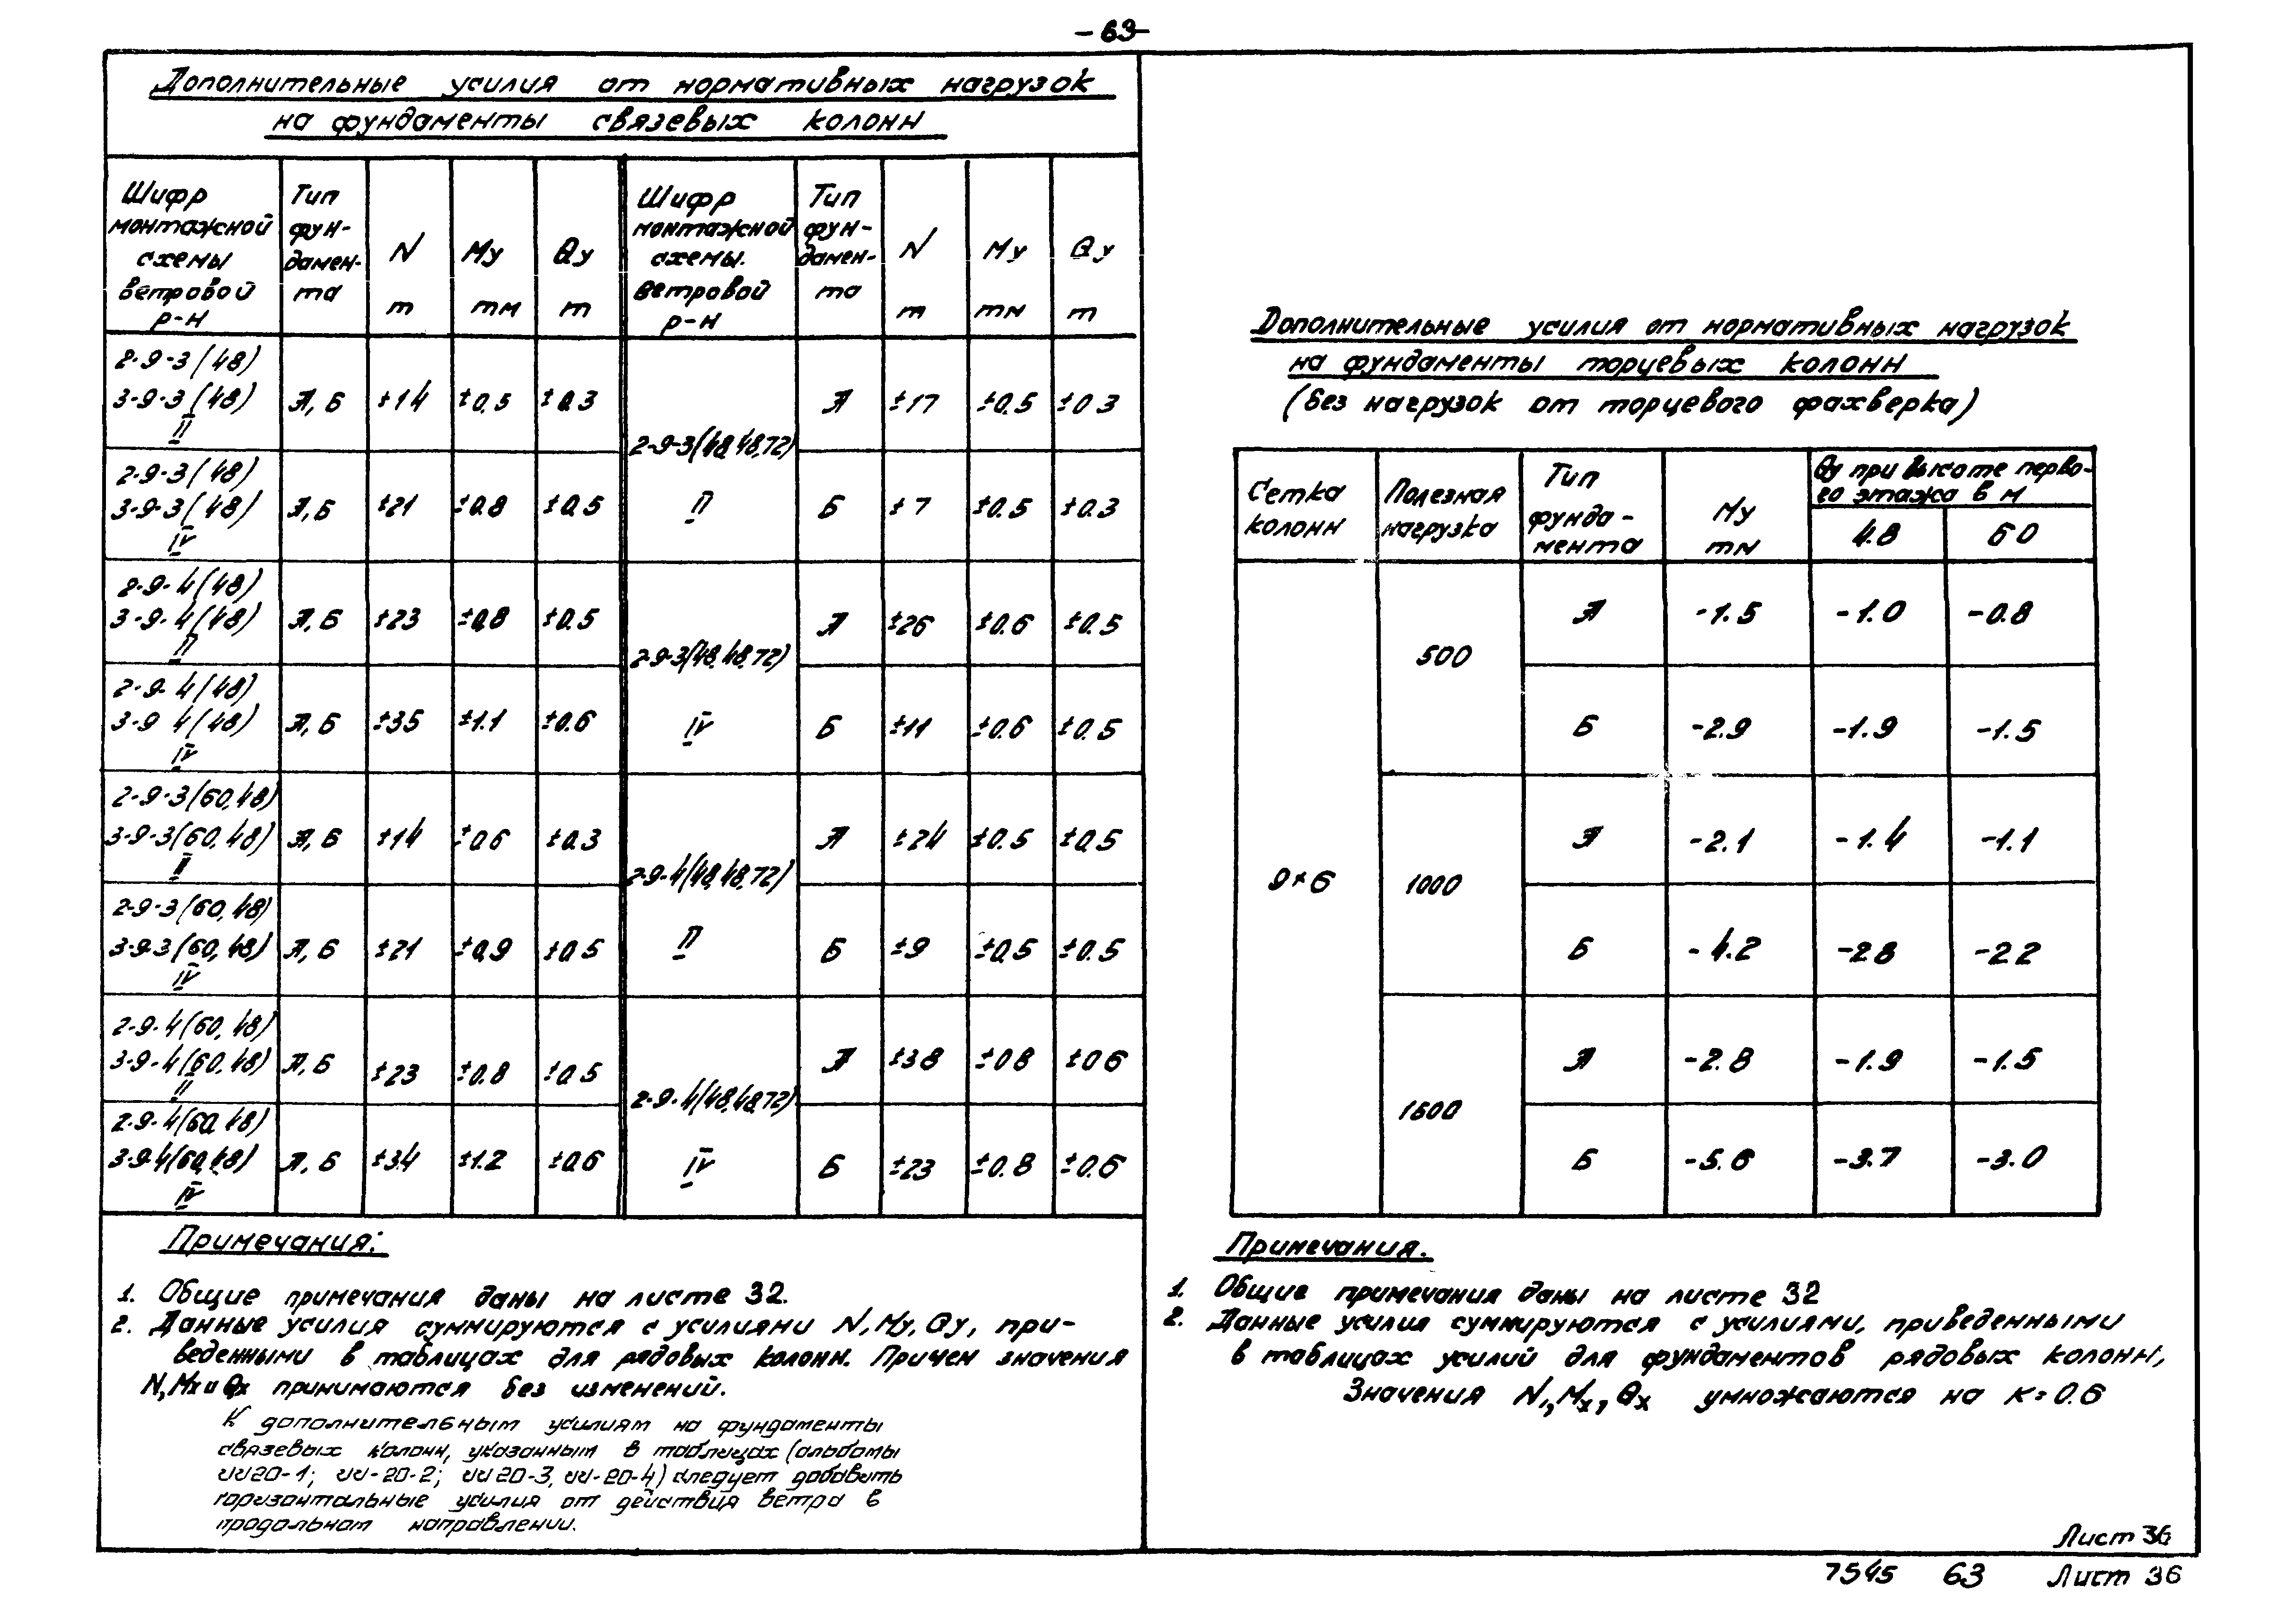 - 63 -
Дополнительные усилия от нормативных нагрузок
на фундаменты связевых колонн
Шифр монтажной схемы ветровой р-н | Тип фун-дамен-та | N т | Му тм | Qу т | Шифр монтажной схемы. ветровой р-н | Тип фун-дамен-та | N т | Му тм | Qу т
2-9-3(48)
3-9-3(48) II | А, Б | ±14 | ±0.5 | ±0.3
2-9-3(48)
3-9-3(48) IV | А, Б | ±21 | ±0.8 | ±0.5
2-9-4(48)
3-9-4(48) II | А, Б | ±23 | ±0.8 | ±0.5
2-9-4(48)
3-9 4(48) IV | А, Б | ±35 | ±1.1 | ±0.6
2-9-3(60,48)
3-9-3(60,48) II | А, Б | ±14 | ±0.6 | ±0.3
2-9-3(60,48)
3-9-3(60,48) IV | А, Б | ±21 | ±0.9 | ±0.5
2-9-4(60,48)
3-9-4(60,48) II | А, Б | ±23 | ±0.8 | ±0.5
2-9-4(60,48)
3-9-4(60,48) IV | А, Б | ±34 | ±1.2 | ±0.6
2-9-3(48,48,72) II | А | ±17 | ±0.5 | ±0.3
Б | ±7 | ±0.5 | ±0.3
2-9-3(48,48,72) IV | А | ±26 | ±0.6 | ±0.5
Б | ±11 | ±0.6 | ±0.5
2-9-4(48,48,72) II | А | ±24 | ±0.5 | ±0.5
Б | ±9 | ±0.5 | ±0.5
2-9-4(48,48,72) IV | А | ±38 | ±0.8 | ±0.6
Б | ±23 | ±0.8 | ±0.6
Примечания:
1. Общие примечания даны на листе 32.
2. Данные усилия суммируются с усилиями N, Му, Qу, при-
веденными в таблицах для рядовых колонн. Причем значения
N, Мх и Qх принимаются без изменений.
К дополнительным усилиям на фундаменты
связевых колонн, указанным в таблицах (альбомы
ИИ20-1; ИИ-20-2; ИИ20-3, ИИ-20-4) следует добавить
горизонтальные усилия от действия ветра в
продольном направлении.
Дополнительные усилия от нормативных нагрузок
на фундаменты торцевых колонн
(без нагрузок от торцевого фахверка)
Сетка колонн | Полезная нагрузка | Тип фунда-мента | Му тм | Qу при высоте перво-го этажа в м
4.8 | 6 0
9×6 | 500 | А | -1.5 | -1.0 | -0.8
Б | -2.9 | -1.9 | -1.5
1000 | А | -2.1 | -1.4 | -1.1
Б | -4.2 | -2 8 | -2 2
1500 | А | -2.8 | -1.9 | -1.5
Б | -5.6 | -3.7 | -3.0
Примечания.
1. Общие примечания даны на листе 32
2. Данные усилия суммируются с усилиями, приведенными
в таблицах усилий для фундаментов рядовых колонн,
Значения N, Мх, Qх умножаются на к=0.6
Лист 36
7545 63 Лист 36